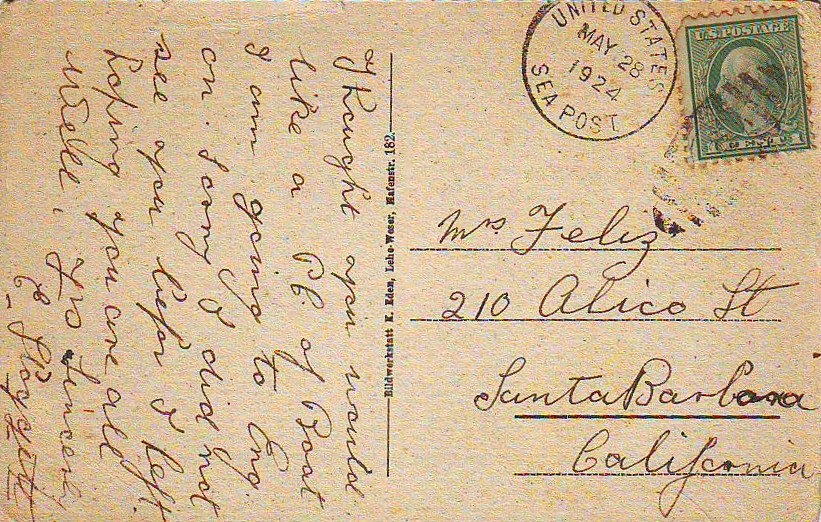 Thought you would
like a P.C. of Boat
I am going to Eng
on. Sorry I did not
see you befor I left.
hoping you are all
well, Yrs Sincerely
C.
Bildwerkstatt K. Eden, Lehe-Weser, Hafenstr. 182.
UNITED STATES
MAY 28
1924
SEA POST
U.S. POSTAGE
Mrs Feliz
210 Alico St
Santa Barbara
California